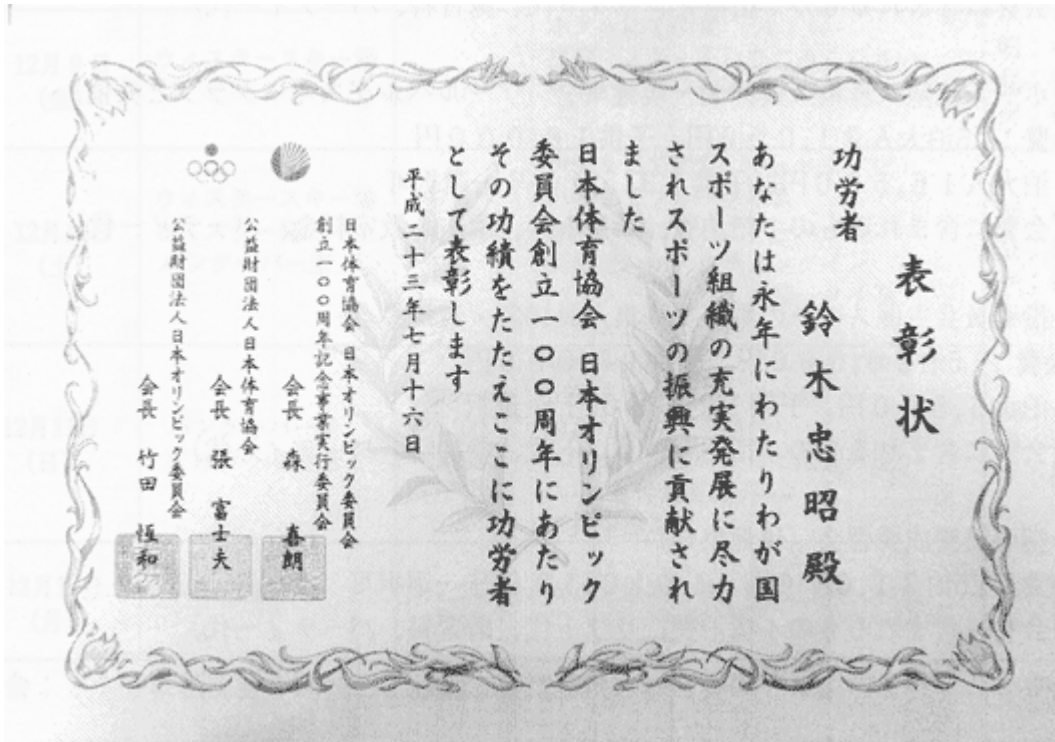 表彰状
功労者
鈴木忠昭殿
あなたは永年にわたりわが国
スポーツ組織の充実発展に尽力
されスポーツの振興に貢献され
ました
日本体育協会 日本オリンピック
委員会創立一〇〇周年にあたり
その功績をたたえここに功労者
として表彰します
平成二十三年七月十六日
日本体育協会 日本オリンピック委員会
創立一〇〇周年記念事業実行委員会
会長 森 喜朗
公益財団法人日本体育協会
会長 張 富士夫
公益財団法人日本オリンピック委員会
会長 竹田 恆和